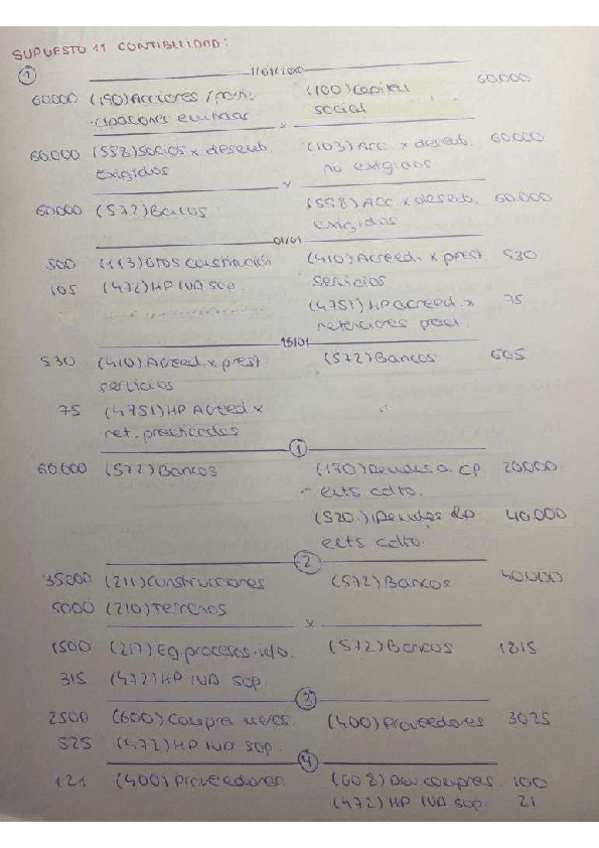 SUPUESTO 11 CONTABILIDAD:
①
1/01/2020
60000 (190) Acciones / parti- (100) Capital 60.000
cipaciones emitidas social
x
60.000 (558) Socios x desemb. (103) Acc. x desemb. 60000
exigidos no exigidos
x
60000 (572) Bancos (558) Acc. x desemb. 60.000
exigidos
01/01
500 (113) Gtos constitución (410) Acreed. x prest. 530
105 (472) HP IVA sop. servicios
(4751) HP acreed. x 75
retenciones pract.
15/01
530 (410) Acreed. x prest (572) Bancos 605
servicios
75 (4751) HP Acreed. x
ret. practicadas
①
60.000 (572) Bancos (170) Deudas a CP 20000
ents cdto.
(520.) Deudas Lp 40.000
ents cdto.
②
35000 (211) Construcciones (572) Bancos 40000
5000 (210) Terrenos
x
1500 (217) Eq procesos info. (572) Bancos 1815
315 (472) HP IVA sop
③
2500 (600) Compra mercs. (400) Proveedores 3025
525 (472) HP IVA sop.
④
121 (400) Proveedores (608) Dev compras 100
(472) HP IVA sop. 21